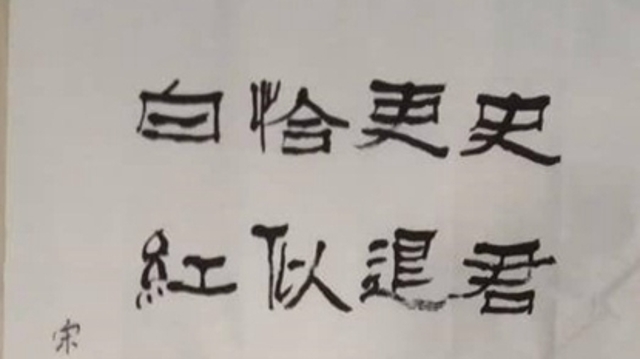 史君
更退
恰似
白紅
宋